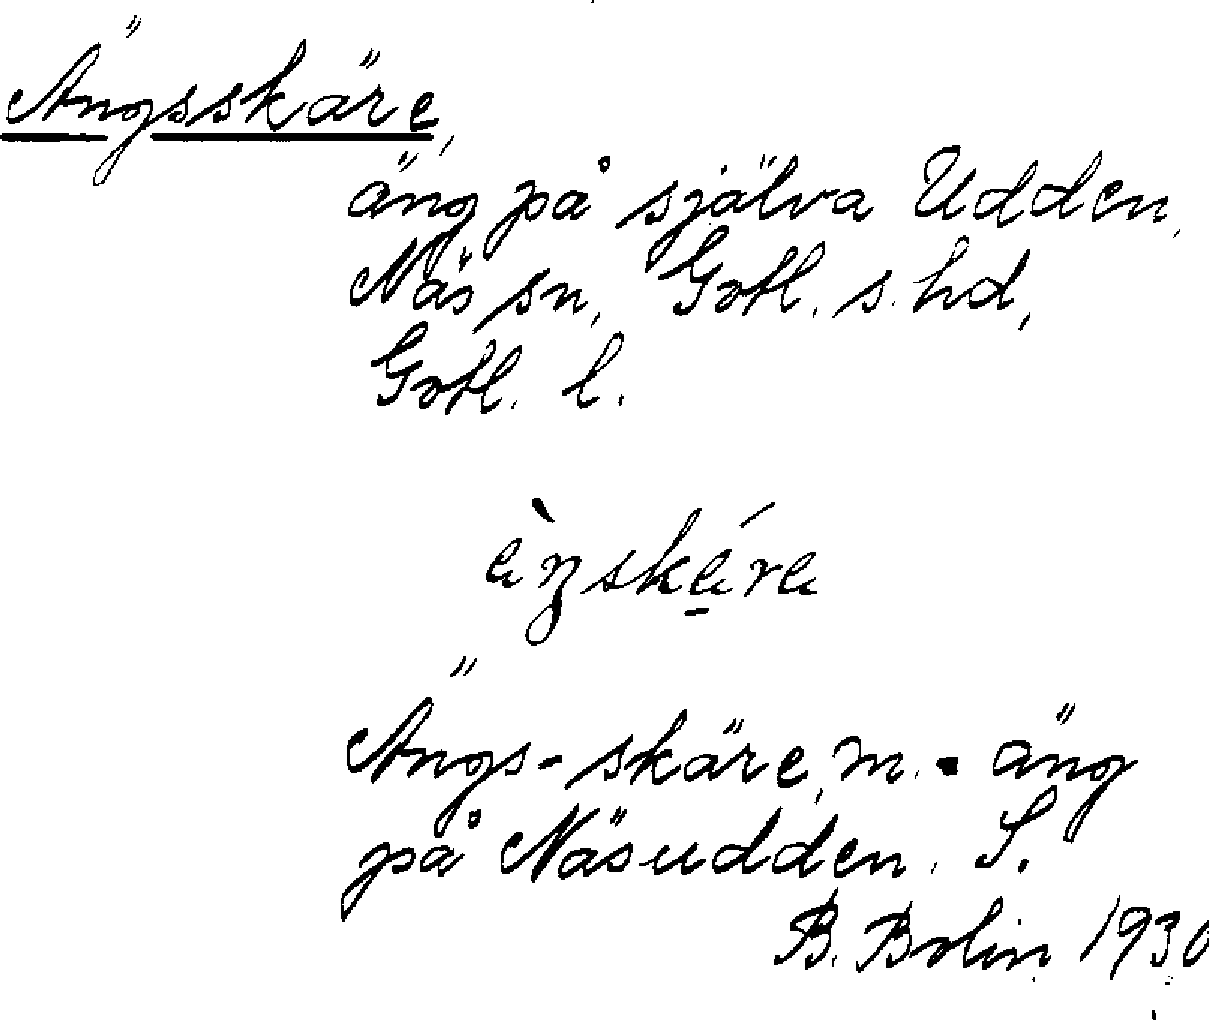 Ängsskäre,
äng på själva Udden,
Näs sn, Gotl. s. hd,
Gotl. l.
Ängs-skäre, m. äng
på Näsudden. S.
B. Bolin 1930